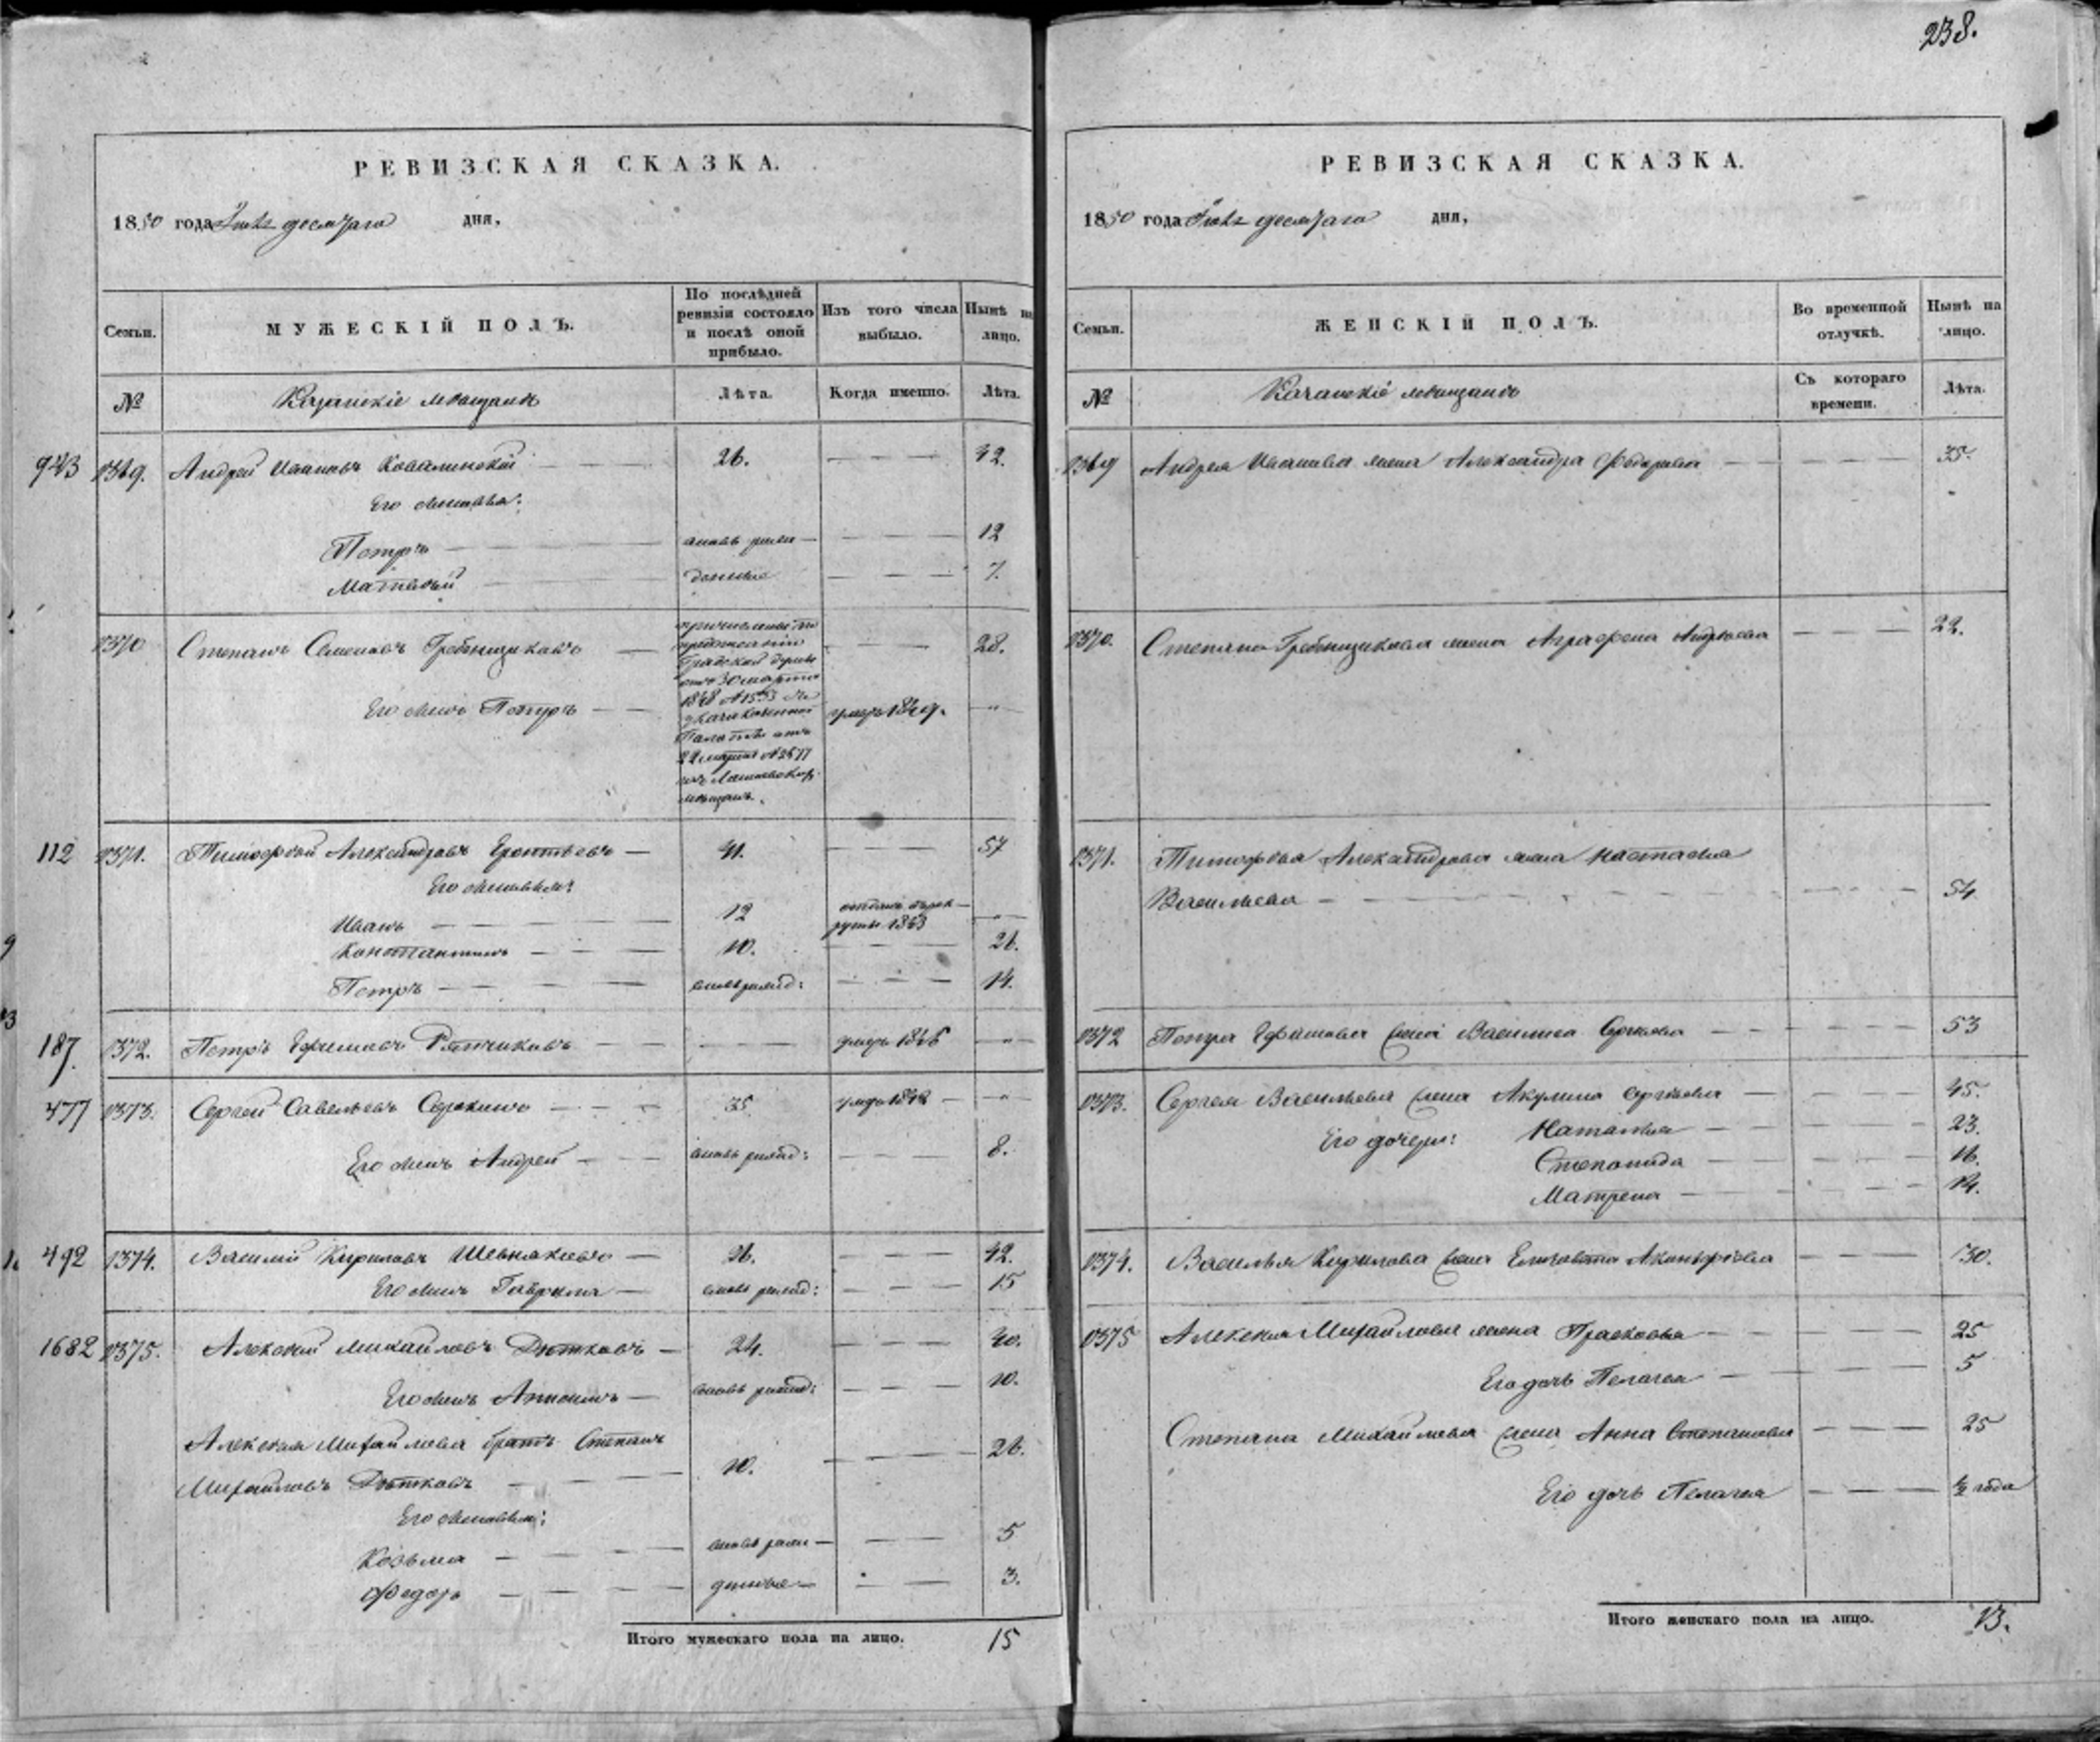 238.
РЕВИЗСКАЯ СКАЗКА.
1850 года десятаго дня,
Семьи. МУЖЕСКІЙ ПОЛЪ. По послѣдней ревизіи состояло и послѣ оной прибыло. Изъ того числа выбыло. Нынѣ на лицо.
№ Казанскіе мѣщане Лѣта. Когда именно. Лѣта.
943 1369. Андрей Ивановъ Ковалинскій — 26. — — — 42.
Его сыновья:
Петръ — вновь рож— — — — 12
Матвѣй — денные — — — 7.
1370 Степанъ Семеновъ Гребенщиковъ — — — — 28.
причисленъ по
предписанію
Градской Думы
отъ 30 марта
1848 №
Казенной
Палаты отъ
22 марта
мѣщанъ.
Его сынъ Петръ — — умеръ 1849. — „ —
112 1371. Тимофей Александровъ Ерофѣевъ — 41. — — — 57
Его сыновья:
Иванъ — — 12 отданъ въ рек-
руты 1843 — „ —
Константинъ — — — 10. — — — 26.
Петръ — — — вновь рожд: — — — 14.
187. 1372. Петръ Ефимовъ — — — — умеръ 1846 — „ —
477 1373. Сергей Савельевъ Сорокинъ — — — 35 умеръ 1848 — — „ —
Его сынъ Андрей — — вновь рожд: — — — 8.
492 1374. Василій Кириловъ Шевняковъ — 26. — — — 42.
Его сынъ Гаврила — вновь рожд: — — — 15
1682 1375. Алексей Михайловъ Дѣтковъ — 24. — — — 40.
Его сынъ Антонъ — вновь рожд: — — — 10.
Алексея Михайлова братъ Степанъ
Михайловъ Дѣтковъ — — — 10. — — — 26.
Его сыновья:
Козьма — — — вновь рож— — — 5
Федоръ — — — денные — — — 3.
Итого мужескаго пола на лицо. 15
РЕВИЗСКАЯ СКАЗКА.
1850 года десятаго дня,
Семьи. ЖЕНСКІЙ ПОЛЪ. Во временной отлучкѣ. Нынѣ на лицо.
№ Казанскіе мѣщане Съ котораго времени. Лѣта.
1369 Андрея Иванова жена Александра Федорова — — — — 35.
1370. Степана Гребенщикова жена Аграфена Андреева — — — 22.
1371. Тимофея Александрова жена Настасья
Васильева — — — — 54
1372 Петра Ефимова жена Василиса — — — — 53
1373. Сергея Васильева жена Акулина Сергѣева — — — — 45.
Его дочери: Наталья — — — — 23.
Степанида — — — — 16.
Матрена — — — — 14.
1374. Василья Кирилова жена Елизавета — — — 30.
1375 Алексея Михайлова жена Прасковья — — — — 25
Его дочь Пелагея — — — — 5
Степана Михайлова жена Анна Степанова — — — 25
Его дочь Пелагея — — — ½ года
Итого женскаго пола на лицо. 13.